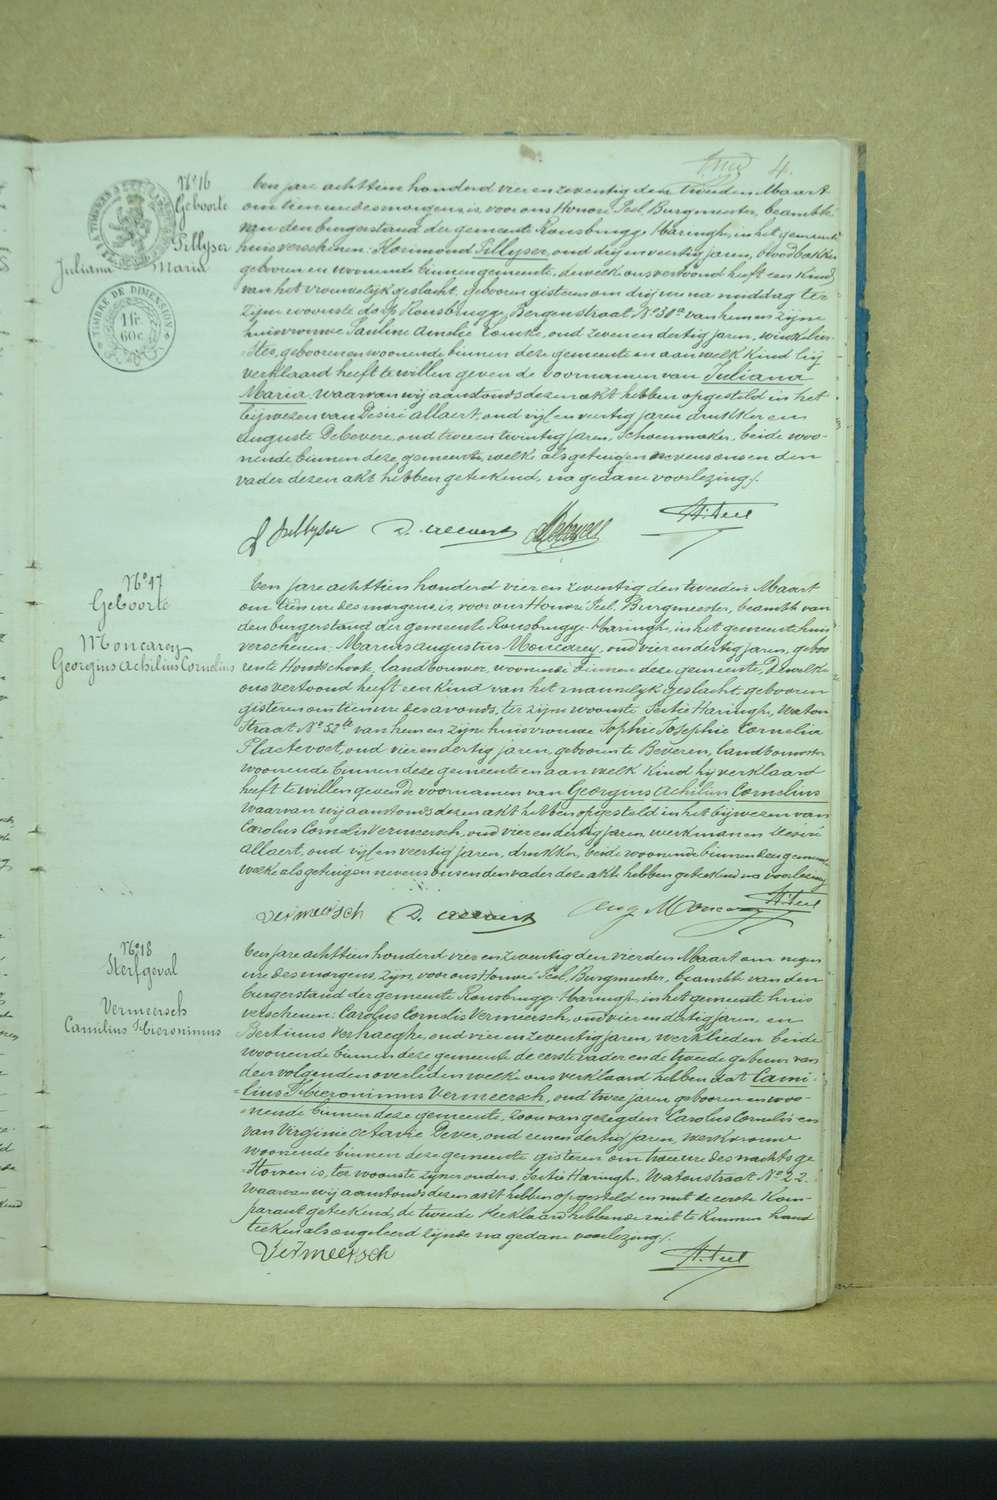 4.
N° 16
Geboorte
Pillyser
Juliana Maria
TIMBRE DE DIMENSION
1 fr
60c
Een jare achttien honderd vier en zeventig den tweeden Maart
om tien ure des morgens, is, voor ons Honoré Peel, Burgmeester, beambte
van den burgerstand der gemeente Rousbrugge Haringhe, in het gemeente
huis verschenen: Florimond Pillyser, oud drij en veertig jaren, broodbakker
geboren en woonende binnen gemeente, dewelke ons vertoond heeft een kind,
van het vrouwelijk geslacht, geboren gisteren om drij ure na middag ter
zijne woonste dorp Rousbrugge, Bergenstraat N° 50 van hem en zijne
huisvrouwe Pauline Amelie, oud zeven en dertig jaren, winkelier-
ster, geboren en woonende binnen deze gemeente en aan welk kind hij
verklaard heeft te willen geven de voornamen van Juliana
Maria, waarvan wij aanstonds dezen akt hebben opgesteld in het
bijwezen van Desiré Allaert, oud vijf en veertig jaren drukker en
Auguste Debevere, oud twee en twintig jaren, Schoenmaker, beide woo-
nende binnen deze gemeente, welke als getuigen nevens ons en den
vader dezen akt hebben geteekend, na gedane voorlezing /.
F Pillyser D. Allaert H. Peel
N° 17
Geboorte
Moncarey
Georgius Achilius Cornelius
Een jare achttien honderd vier en zeventig den tweeden Maart
om tien ure des morgens, is, voor ons Honoré Peel, Burgmeester, beambte van
den burgerstand der gemeente Rousbrugge-Haringhe, in het gemeentehuis
verschenen: Marius Augustus Moncarey, oud vier en dertig jaren, geboo
ren te Hondschoote, landbouwer, woonende binnen deze gemeente, Dewelke
ons vertoond heeft een kind van het mannelijk geslacht, geboren
gisteren om tien ure des avonds, ter zijne woonste Sectie Haringhe, Waton
Straat N° 52 van hem en zijne huisvrouwe Sophie Josephie Cornelia
Plaetevoet, oud vier en dertig jaren, geboren te Beveren, landbouwster
woonende binnen deze gemeente en aan welk kind hij verklaard
heeft te willen geven de voornamen van Georgius Achilius Cornelius
waarvan wij aanstonds dezen akt hebben opgesteld in het bijwezen van
Carolus Cornelis Vermeersch, oud vier en dertig jaren, werkman en Desiré
Allaert, oud vijf en veertig jaren, drukker, beide woonende binnen deze gemeente
welke als getuigen nevens ons en den vader deze akte hebben geteekend na voorlezing
Vermeersch D. Allaert Aug Moncarey H. Peel
N° 18
Sterfgeval
Vermeersch
Camilius Hieronimus
Een jare achttien honderd vier en zeventig den vierden Maart om negen
ure des morgens, zijn, voor ons Honoré Peel Burgmeester, beambte van den
burgerstand der gemeente Rousbrugge-Haringhe, in het gemeente huis
verschenen: Carolus Cornelis Vermeersch, oud vier en dertig jaren, en
Bertinus Verhaeghe, oud vier en zeventig jaren, werklieden beide
woonende binnen deze gemeente de eerste vader en de tweede gebuur van
den volgenden overleden welke ons verklaard hebben dat Cami-
lius Hieronimus Vermeersch, oud twee jaren geboren en woo-
nende binnen deze gemeente, zoon van gezegden Carolus Cornelis en
van Virginie Octavie Dever, oud een en dertig jaren, werkvrouwe
woonende binnen deze gemeente gisteren om twee ure des nachts ge
storven is, ter woonste zijner ouders, Sectie Haringhe, Watonstraat N° 22.
Waarvan wij aanstonds dezen akt hebben opgesteld en met de eerste kom-
parant geteekend, de tweede verklaard hebbende niet te kunnen hand
teeken als ongeleerd zijnde na gedane voorlezing /.
Vermeersch H. Peel